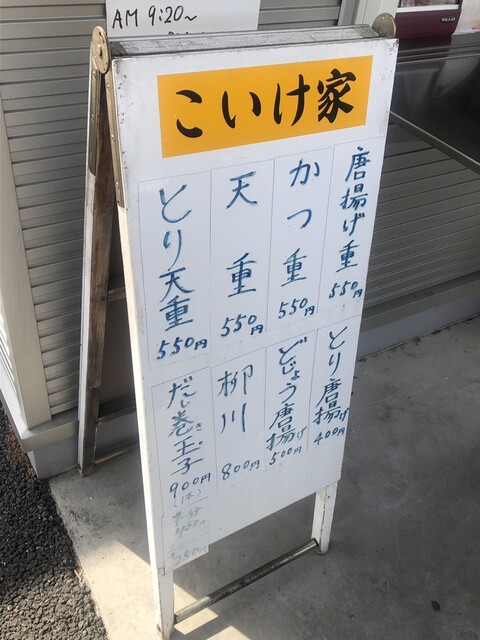 AM 9:20~
こいけ家
唐揚げ重
550円
かつ重
550円
天重
550円
とり天重
550円
とり唐揚げ
400円
どじょう唐揚げ
500円
柳川
800円
だし巻き玉子
900円
(1本)